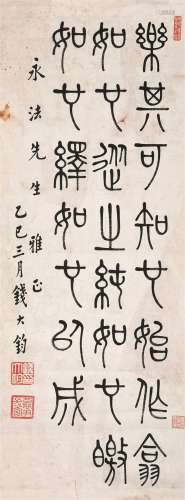 樂其可知也始作翕
如也從之純如也皦
如也繹如也以成
永法先生雅正
乙巳三月錢大鈞